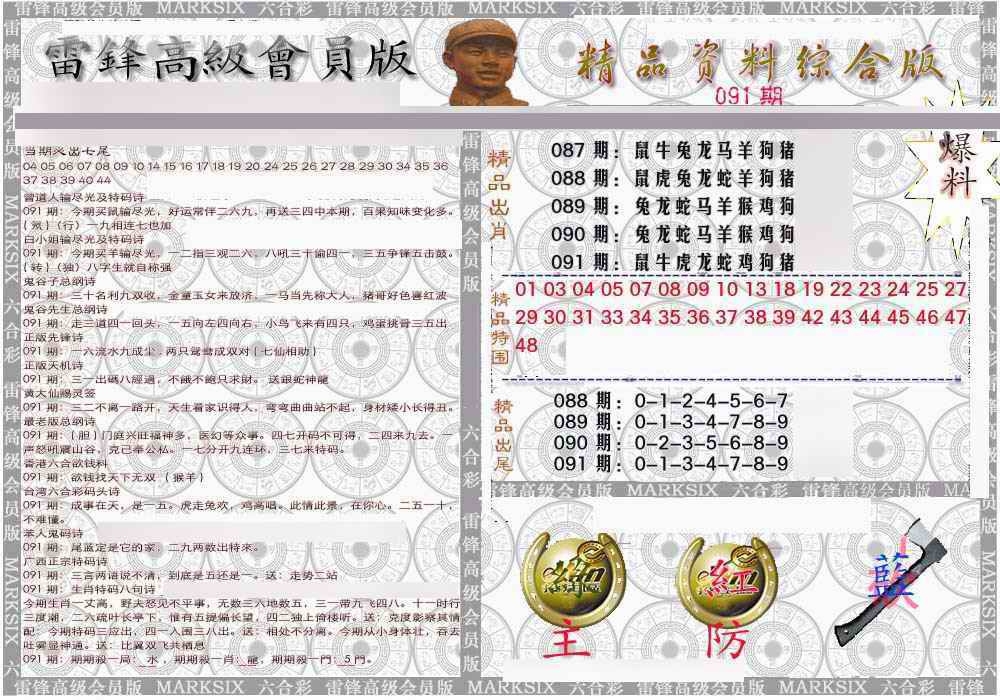 雷锋高级会员版 MARKSIX 六合彩 雷锋高级会员版 MARKSIX 六合彩 雷锋高级会员版 MARKSIX 六合彩 雷锋
雷鋒高級會員版
精品资料综合版
091期
爆料
当期
04 05 06 07 08 09 10 14 15 16 17 18 19 20 24 25 26 27 28 29 30 34 35 36
37 38 39 40 44
曾道人输尽光及特码诗
091期：今期买鼠输尽光，好运常伴二六九，再送三四中本期，百果知味变化多。
(行) 一九相连七也加
白小姐输尽光及特码诗
091期：今期买羊输尽光，一二指三观二六，八吼三十偷四一，三五争锋五击鼓。
{转} (独) 八字生就自称强
鬼谷子总纲诗
091期：三十名利九双收，金童玉女来放济，一马当先称大人，猪哥好色喜红波
鬼谷先生总纲诗
091期：走三道四一回头，一五向左四向右，小鸟飞来有四只，鸡蛋挑骨三五出
正版先锋诗
091期：一六流水九成尘，两只鸳鸯成双对{七仙相助}
正版天机诗
091期：三一出碼八經過，不餓不飽只求財。送銀蛇神龍
黄大仙赐灵签
091期：三二不离一路开，天生看家识得人，弯弯曲曲站不起，身材矮小长得丑。
最老版总纲诗
091期：{胆}门庭兴旺福神多，医幻等众事。四七开码不可得，二四来九去。一
声怒吼震山谷，克己奉公私。一七分开九连环，三七来特码。
香港六合欲钱料
091期：欲钱找天下无双 {猴羊}
台湾六合彩码头诗
091期：成事在天，是一五。虎走兔欢，鸡高唱。此情此景，在你心。二五一十，
不难懂。
苯人鬼码诗
091期：尾蓝定是它的家，二九两数出特来。
广西正宗特码诗
091期：三言两语说不清，到底是五还是一。送：走势二站
091期：生肖特码八句诗
今期生肖一丈高，野夫怒见不平事，无数三六地数五，三一带九飞四八。十一时行
三度潮，二六疏叶长亭下，惟有五提偏长望，四二独上倚楼听。送：克度影察其情
配：今期特码三应出，四一入围三八出。送：相处不分离。今期从小身体壮，吞去
吐雾显神通。送：比翼双飞共栖息
091期：期期殺一局：水，期期殺一肖：龍，期期殺一門：5門。
精品出肖
087期：鼠牛兔龙马羊狗猪
088期：鼠虎兔龙蛇羊狗猪
089期：兔龙蛇马羊猴鸡狗
090期：兔龙蛇马羊猴鸡狗
091期：鼠牛虎龙蛇鸡狗猪
精品特围
01 03 04 05 07 08 09 10 13 18 19 22 23 24 25 27
29 30 31 33 34 35 36 37 38 39 42 43 44 45 46 47
48
精品出尾
088期：0-1-2-4-5-6-7
089期：0-1-3-4-7-8-9
090期：0-2-3-5-6-8-9
091期：0-1-3-4-7-8-9
雷锋高级会员版 MARKSIX 六合彩 雷锋高级会员版 MARKSIX
红
藍
主
防
雷锋高级会员版 MARKSIX 六合彩 雷锋高级会员版 MARKSIX 六合彩 雷锋高级会员版 MARKSIX 六合彩 雷锋